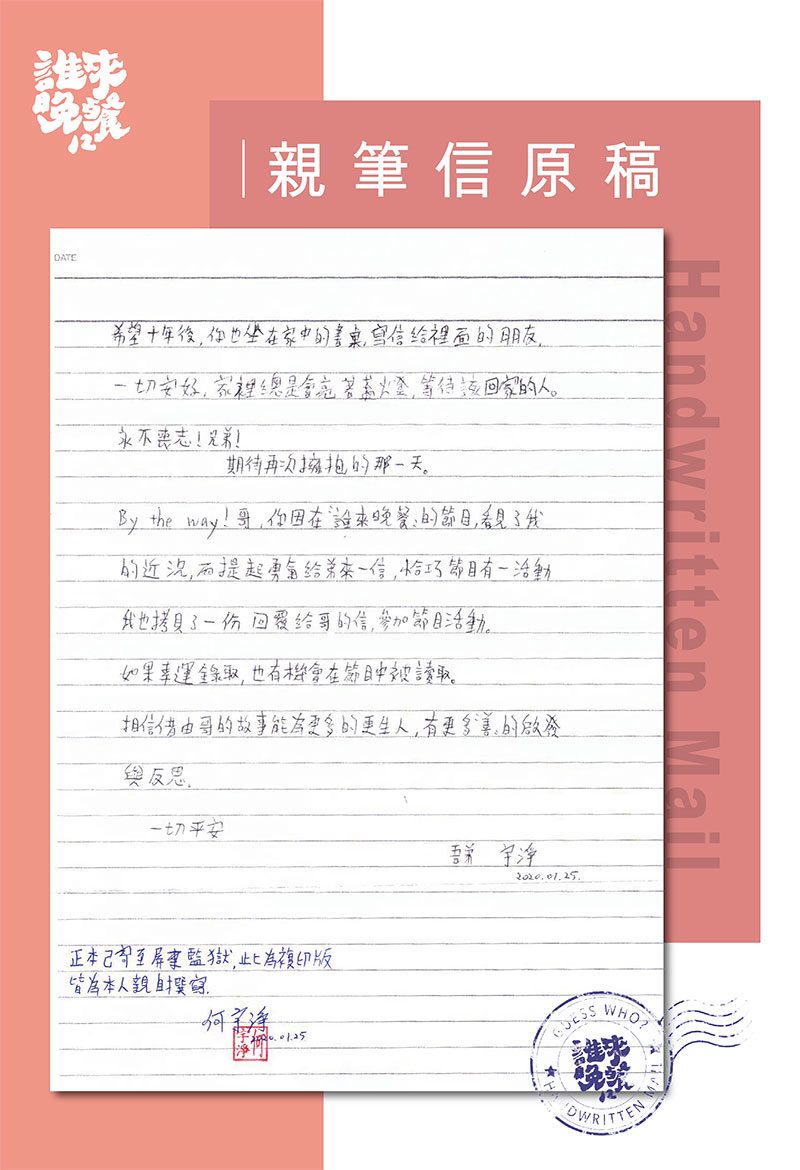 誰來
晚餐
12
親筆信原稿
Handwritten Mail
DATE
希望十年後，你也坐在家中的書桌，寫信給裡面的朋友.
一切安好，家裡總是會亮著盞火燈，等待該回家的人。
永不喪志！兄弟！
期待再次擁抱的那一天。
By the way！哥，你因在"誰來晚餐"的節目，看見了我
的近況，而提起勇氣給弟來一信，恰巧節目有一活動
我也拷貝了一份 回覆給哥的信，參加節目活動。
如果幸運錄取，也有機會在節目中被讀取。
相信借由哥的故事能為更多的更生人，有更多"善"的啟發
與反思.
一切平安
吾弟 宇淨
2020.01.25.
正本已寄至屏東監獄，此為複印版
皆為本人親自撰寫.
何宇淨
2020.01.25
何宇淨
GUESS WHO?
誰來
晚餐
12
HANDWRITTEN MAIL